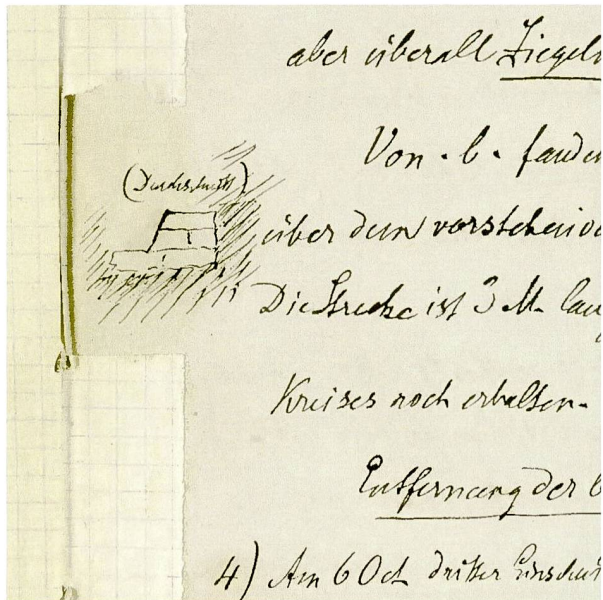 aber überall Ziegeln
(Durchschnitt)
Von . b . fanden
über dem vorstehend
Die Strecke ist 3 M. lang
Kreises noch erhalten.
Entfernung der b
4) Am 6 Oct dritter Einschnitt